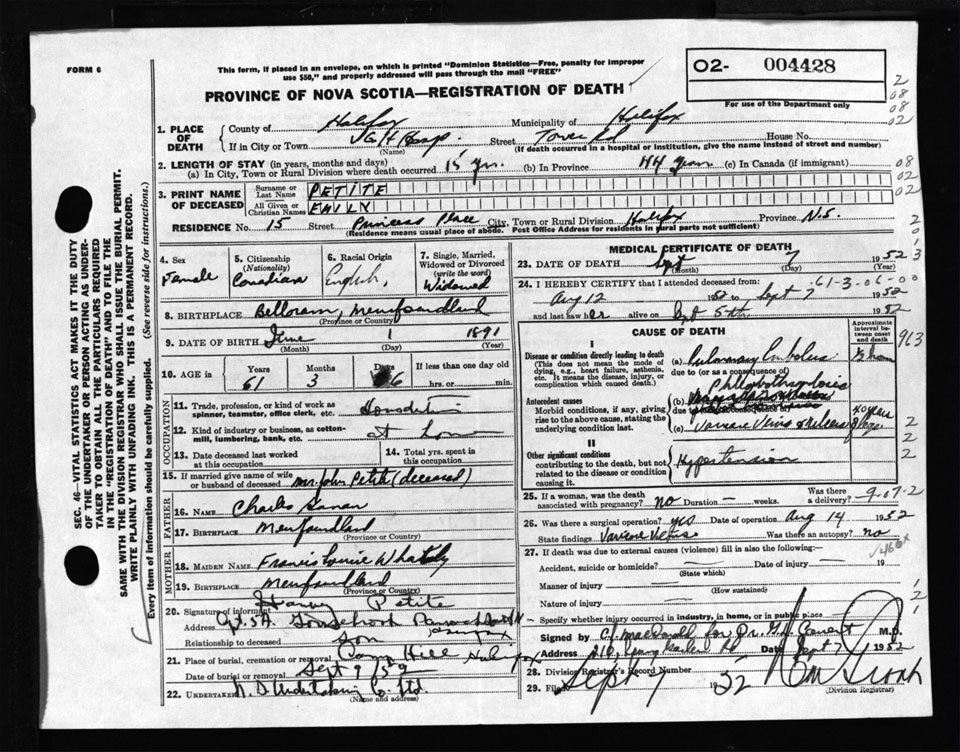 FORM 6
This form, if placed in an envelope, on which is printed "Dominion Statistics—Free, penalty for improper
use $50," and properly addressed will pass through the mail "FREE"
O2- 004428
For use of the Department only
PROVINCE OF NOVA SCOTIA—REGISTRATION OF DEATH
2
08
08
02
1. PLACE OF DEATH
County of Halifax Municipality of Halifax
If in City or Town V.G.H. Hosp. Street Tower Rd House No.
(Name) (If death occurred in a hospital or institution, give the name instead of street and number)
2. LENGTH OF STAY (in years, months and days)
(a) In City, Town or Rural Division where death occurred 15 yrs. (b) In Province 44 years (c) In Canada (if immigrant)
08
02
02
3. PRINT NAME OF DECEASED
Surname or Last Name PETITE
All Given or Christian Names EMILY
RESIDENCE No. 15 Street Princess Place City, Town or Rural Division Halifax Province N.S.
(Residence means usual place of abode. Post Office Address for residents in rural parts not sufficient)
4. Sex Female
5. Citizenship (Nationality) Canadian
6. Racial Origin English
7. Single, Married, Widowed or Divorced (write the word) Widowed
8. BIRTHPLACE Belloram, Newfoundland
(Province or Country)
9. DATE OF BIRTH June 1 1891
(Month) (Day) (Year)
10. AGE in Years 61 Months 3 Days 6 If less than one day old hrs. or min.
OCCUPATION
11. Trade, profession, or kind of work as spinner, teamster, office clerk, etc.
12. Kind of industry or business, as cotton-mill, lumbering, bank, etc. at home
13. Date deceased last worked at this occupation
14. Total yrs. spent in this occupation
15. If married give name of wife or husband of deceased Mr. John Petite (deceased)
FATHER
16. Name Charles
17. Birthplace Newfoundland
(Province or Country)
MOTHER
18. MAIDEN NAME Francis Whately
19. BIRTHPLACE Newfoundland
(Province or Country)
20. Signature of informant Harvey Petite
Address Apt. 5A
Relationship to deceased Son
21. Place of burial, cremation or removal Camp Hill Halifax
Date of burial or removal Sept 9
22. Undertaker N.S. Undertaking Co. Ltd.
(Name and address)
MEDICAL CERTIFICATE OF DEATH
23. DATE OF DEATH Sept 7 1952
(Month) (Day) (Year)
24. I HEREBY CERTIFY that I attended deceased from:
61-3-06-00
Aug 12 1952 to Sept 7 1952
and last saw her alive on Sept 5th, 1952
CAUSE OF DEATH
Approximate interval between onset and death
963
I
Disease or condition directly leading to death
(This does not mean the mode of dying, e.g., heart failure, asthenia, etc. It means the disease, injury, or complication which caused death.)
(a) Pulmonary Embolus ½ hour
due to (or as a consequence of)
Antecedent causes
Morbid conditions, if any, giving rise to the above cause, stating the underlying condition last.
(b) Phlebothrombosis
due to (or as a consequence of)
(c) Varicose Veins & Ulcers
II
Other significant conditions
contributing to the death, but not related to the disease or condition causing it.
Hypertension
25. If a woman, was the death associated with pregnancy? no Duration — weeks. Was there a delivery? 9-07-2
26. Was there a surgical operation? yes Date of operation Aug 14 1952
State findings Varicose Veins Was there an autopsy? no
27. If death was due to external causes (violence) fill in also the following:—
Accident, suicide or homicide? Date of injury 19
(State which)
Manner of injury
(How sustained)
Nature of injury
Specify whether injury occurred in industry, in home, or in public place
Signed by C. J. MacDonald for Dr. M.D.
Address 210 Spring Garden Rd Date Sept 7 1952
28. Division Registrar's Record Number
29. Filed Sept 7 1952
(Division Registrar)
SEC. 46—VITAL STATISTICS ACT MAKES IT THE DUTY
OF THE UNDERTAKER OR PERSON ACTING AS UNDER-
TAKER TO OBTAIN ALL THE PARTICULARS REQUIRED
IN THE "REGISTRATION OF DEATH" AND TO FILE THE
SAME WITH THE DIVISION REGISTRAR WHO SHALL ISSUE THE BURIAL PERMIT.
WRITE PLAINLY WITH UNFADING INK. THIS IS A PERMANENT RECORD.
Every item of information should be carefully supplied. (See reverse side for instructions.)